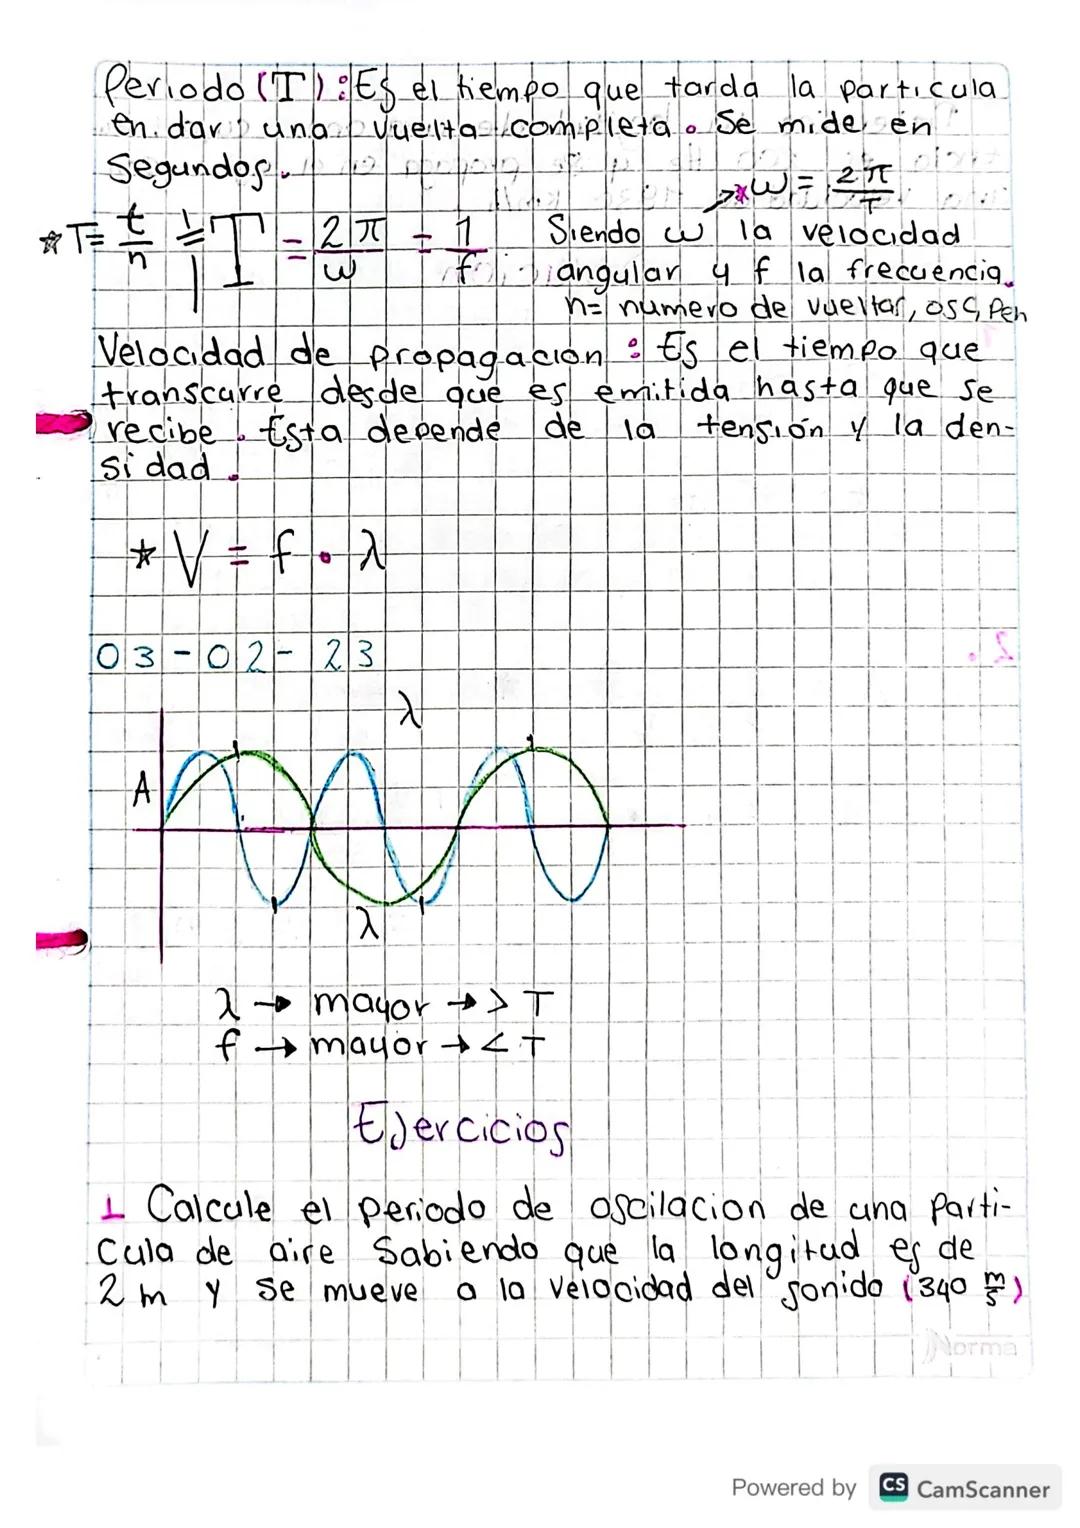 Periodo (T): Es el tiempo que tarda la particula
en dar una vuelta completa. Se mide en
segundos.
*ω = 2π/T
*T= t/n = T = 2π/ω = 1/f
Siendo ω la velocidad
angular y f la frecuencia.
n= numero de vueltas, osc, pen
Velocidad de propagación: Es el tiempo que
transcurre desde que es emitida hasta que se
recibe. Esta depende de la tensión y la den-
sidad.
* V = f . λ
03-02-23
λ
A
λ
λ → mayor → > T
f → mayor → < T
Ejercicios
1 Calcule el periodo de oscilacion de una parti-
cula de aire sabiendo que la longitud es de
2 m y se mueve a la velocidad del sonido (340 m/s)
Norma
Powered by CS CamScanner